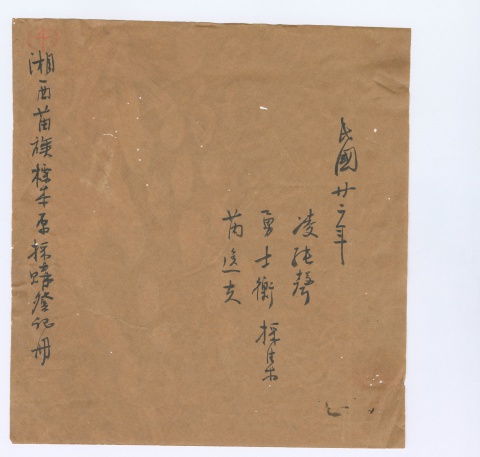 民國廿二年
凌純聲
勇士衡 採集
芮逸夫
湘西苗族標本原採購登記冊